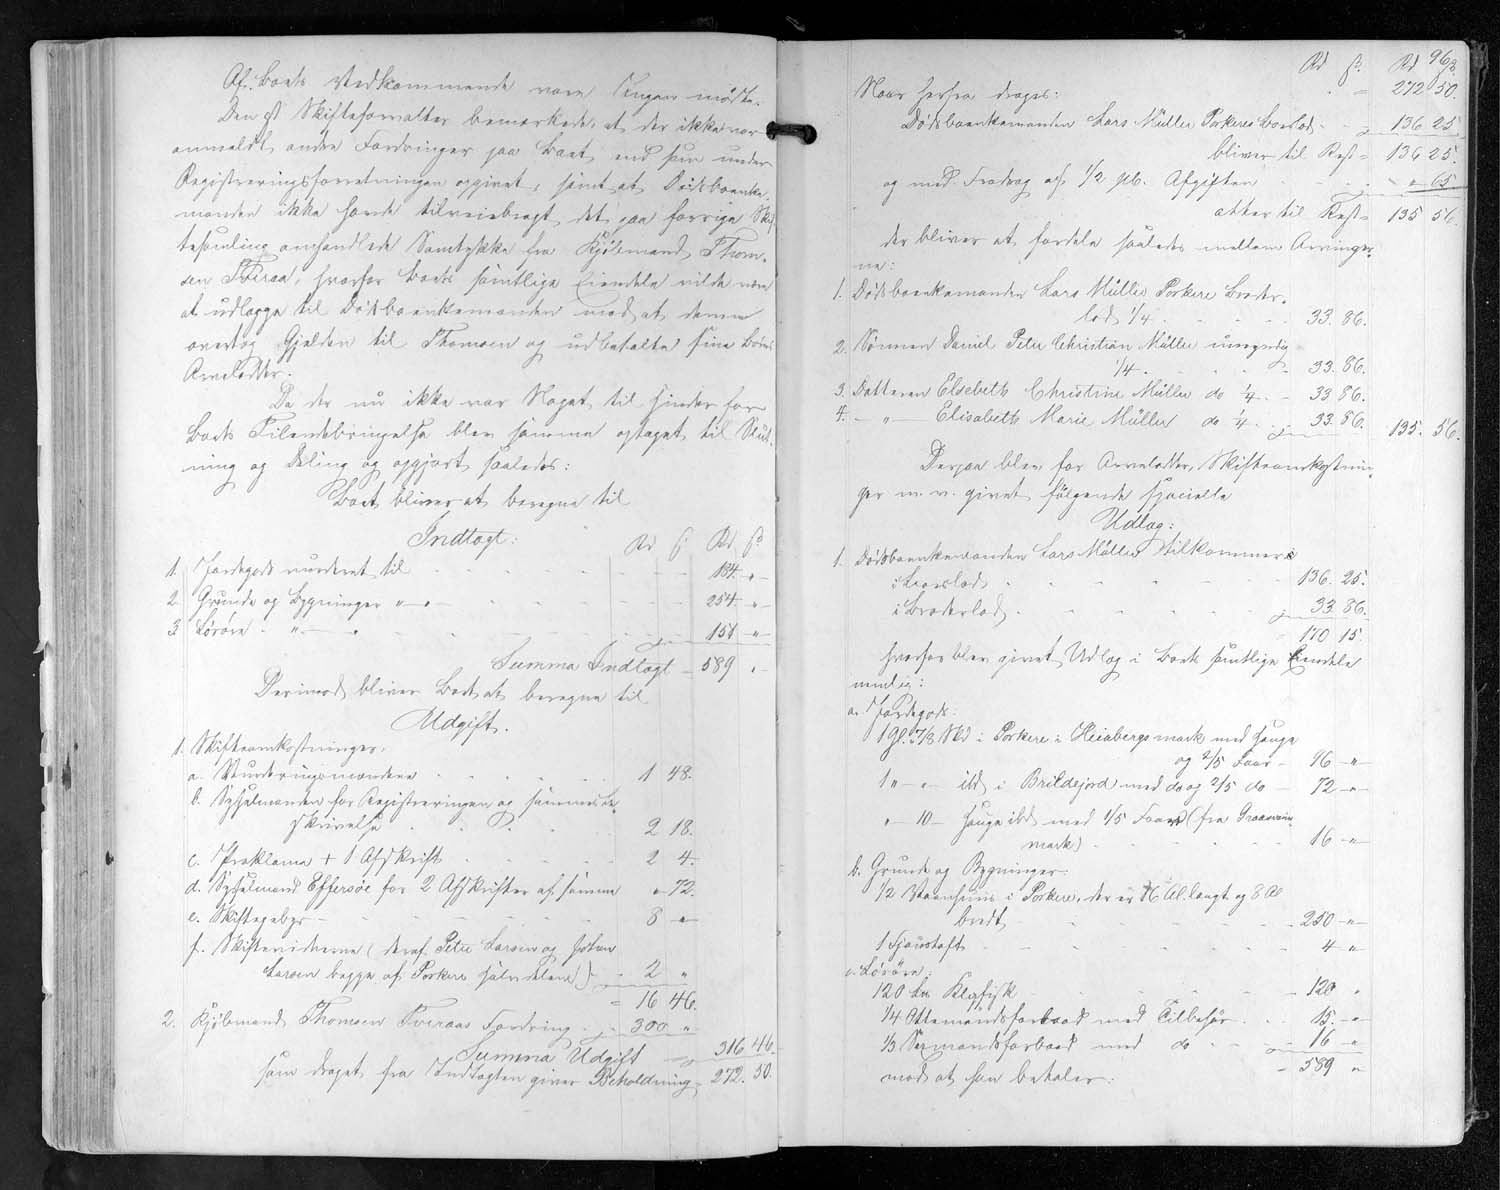 Af Boets Vedkommende vare Ingen mødte.
Den cst Skifteforvalter bemærkede, at der ikke var
anmeldt andre Fordringer paa Boet end som under
Registreringsforretningen opgivet, samt at Dødsboenke-
manden ikke havde tilveiebragt det paa forrige Skif-
tesamling omhandlede Samtykke fra Kjøbmand Thom-
sen Tveraa, hvorfor Boets samtlige Eiendele vilde være
at udlægge til Dødsboenkemanden mod at denne
overtog Gjælden til Thomsen og udbetalte sine Børns
Arvelodder.
Da der nu ikke var Noget til Hinder for
Boets Tilendebringelse blev samme optaget til Slut-
ning og Deling og opgjort saaledes:
Boet bliver at beregne til
Indtægt: Rd ß. Rd ß.
1. Jordegods vurderet til 184. "
2. Grunde og Bygninger " 254. "
3 Løsøre " 151 "
Summa Indtægt 589 "
Derimod bliver Boet at beregne til
Udgift.
1. Skifteomkostninger:
a. Vurderingsmændene 1 48.
b. Sysselmanden for Registreringen og sammes Be-
skrivelse 2 18.
c. Proklama + 1 Afskrift 2 4.
d. Sysselmand Effersøe for 2 Afskrifter af samme " 72.
e. Skiftegebyr 8 "
f. Skiftevidnerne (deraf Peter Larsen og Johan
Larsen begge af Porkere halvdelene) 2 "
16 46.
2. Kjøbmand Thomsen Tveraas Fordring 300 "
Summa Udgift 316 46.
som draget fra Indtægten giver Beholdning 272. 50.
96.
Rd ß. Rd ß.
272 50.
Naar herfra drages:
Dødsboenkemanden Lars Müller Porkere Boeslod 136 25
bliver til Rest 136 25.
og med Fradrag af 1/2 pCt. Afgiften " 65
atter til Rest 135 56.
der bliver at fordele saaledes mellem Arvinger-
ne:
1. Dødsboenkemanden Lars Müller Porkere Broder-
lod 1/4 33. 86.
2. Sønnen Daniel Peter Christian Müller umyndig
1/4 33. 86.
3. Datteren Elsebeth Christine Müller do 1/4 33 86.
4. " Elisabeth Marie Müller do 1/4 33. 86. 135. 56.
Derpaa blev for Arvelodder, Skifteomkostnin-
ger m. v. givet følgende specielle
Udlæg:
1. Dødsboenkemanden Lars Müller tilkommer
i Boeslod 136. 25.
i Broderlod 33 86.
170 15.
hvorfor blev givet Udlæg i Boets samtlige Eiendele
nemlig:
a. Jordegods:
1 Gl. 7/8 Skd i Porkere i Heiabergs mark med Hauge
og 2/5 Faar 96 "
1 " " ibd i Brildejord med do og 2/5 do 72 "
" 10 Hauge ibd med 1/5 Faar (fra
mark) 16 "
b. Grunde og Bygninger:
1/2 Vaanhuus i Porkere, der er 16 Al. langt og 8 Al
bredt 250 "
1 Fjøustoft 4 "
c. Løsøre:
120 Lu Klipfisk 120 "
1/4 Ottemandsfarbaad med Tilbehør 15. "
1/3 Sexmandsfarbaad med do 16 "
589 "
mod at han betaler: